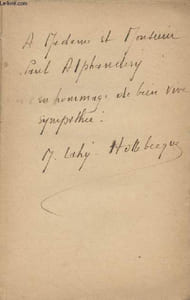 A Madame et Monsieur
Paul Alphandéry
en hommage de bien vive
sympathie.
M. Lahy-Hollebecque